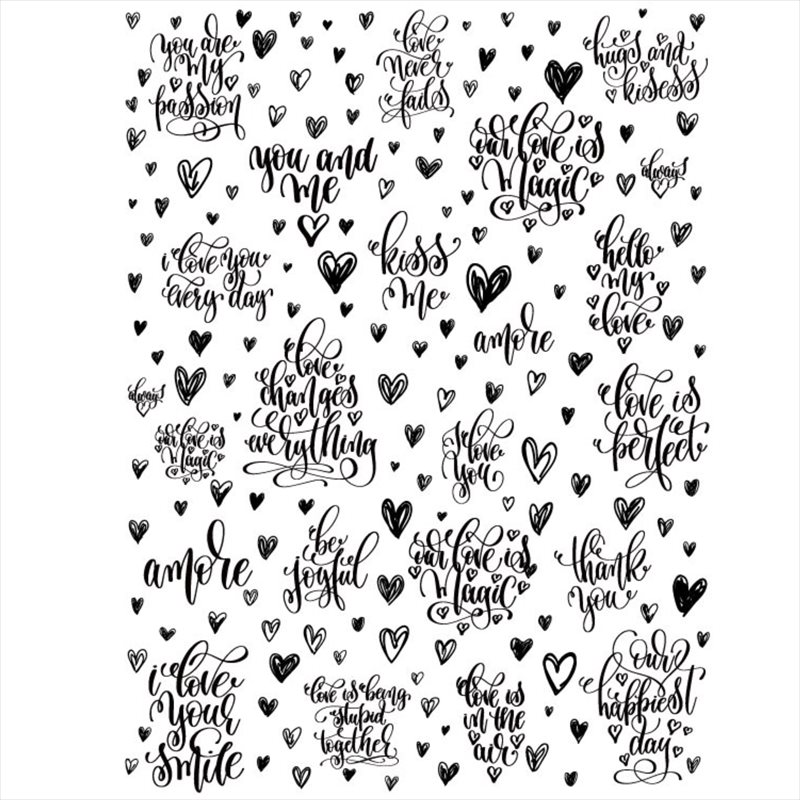 you are
my
passion
love
never
fails
hugs and
kisess
you and
me
our love is
Magic
always
i love you
every day
kiss
me
hello
my
love
amore
love
changes
everything
always
our love is
Magic
I love
you
love is
perfect
amore
be
joyful
our love is
Magic
thank
you
i love
your
smile
love is being
stupid
together
love is
in the
air
our
happiest
day